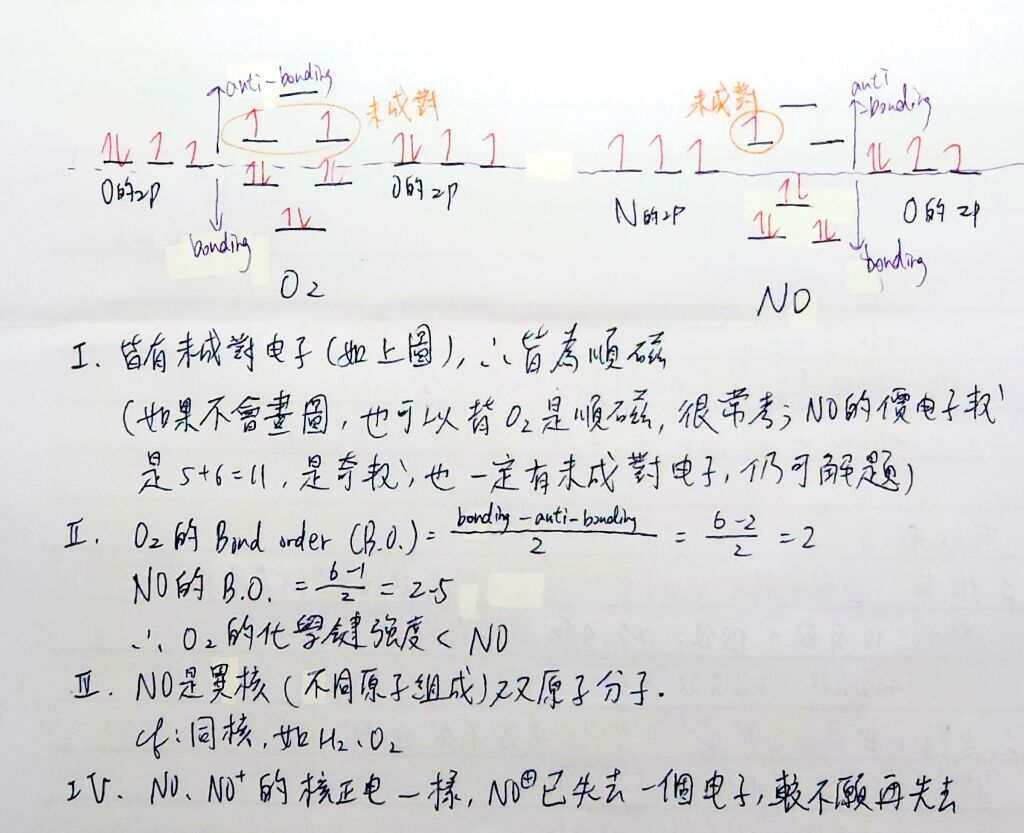 anti-bonding
未成對
O的2p
O的2p
bonding
O2
未成對
anti
-bonding
N的2P
O的2P
bonding
NO
I. 皆有未成對电子(如上圖), ∴皆為順磁
(如果不會畫圖, 也可以背O2是順磁, 很常考; NO的價电子数
是5+6=11, 是奇数, 也一定有未成對电子, 仍可解題)
II. O2的 Bond order (B.O.) = bonding-anti-bonding / 2 = 6-2 / 2 = 2
NO的 B.O. = 6-1 / 2 = 2.5
∴ O2的化學鍵強度 < NO
III. NO是異核(不同原子組成)双原子分子.
cf: 同核, 如H2、O2
IV. NO、NO+的核正电一樣, NO⊕已失去一個电子, 較不願再失去